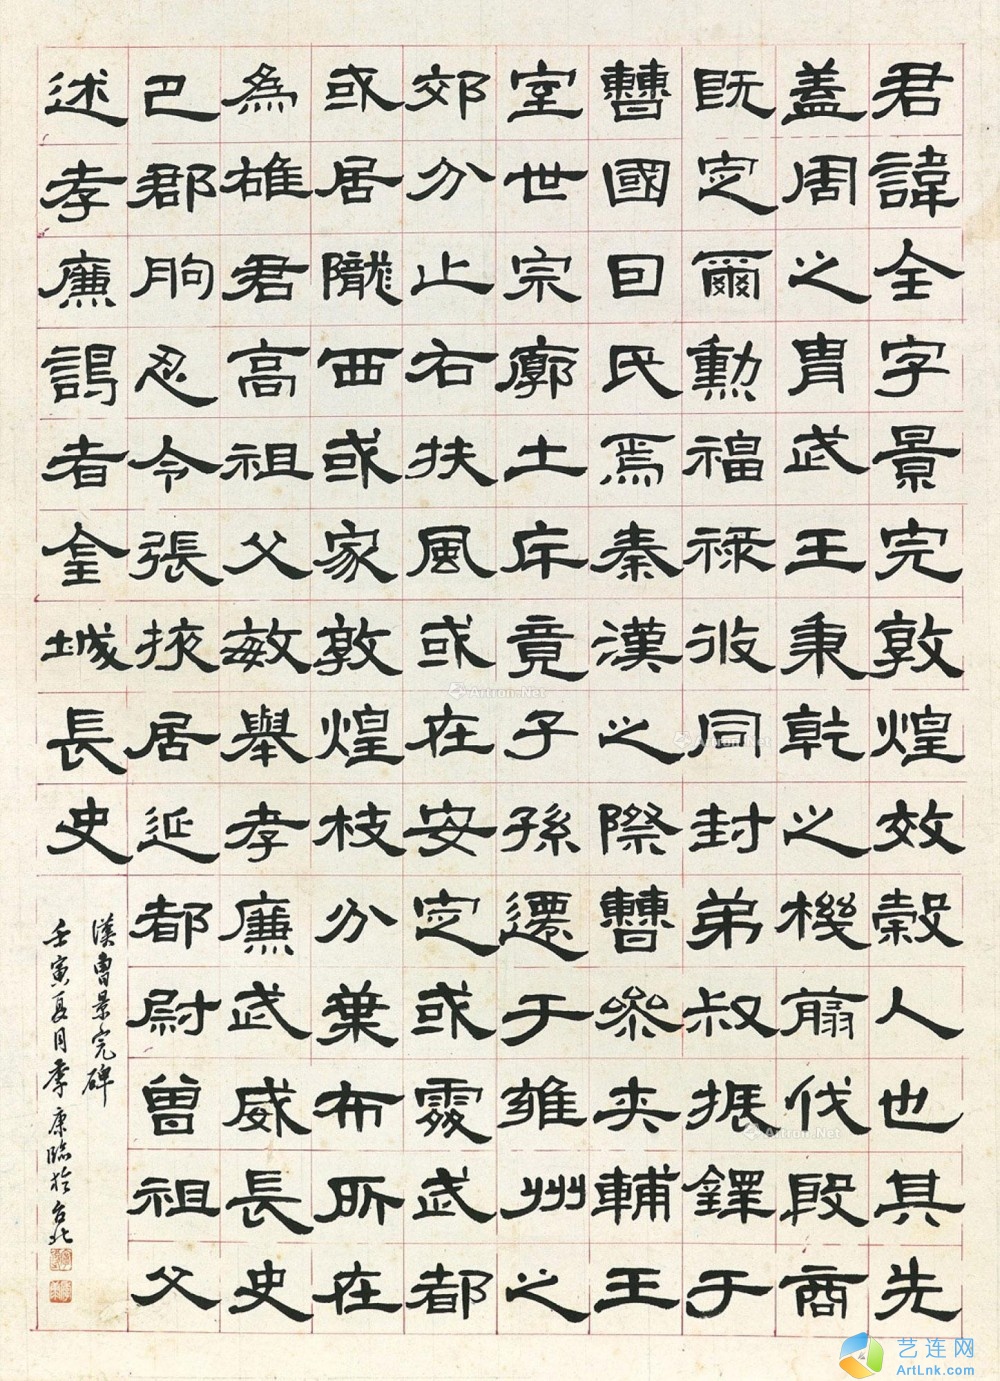 君諱全字景完敦煌效穀人也其先
蓋周之胄武王秉乾之機翦伐殷商
既定爾勳福祿攸同封弟叔振鐸于
曹國因氏焉秦漢之際曹參夾輔王
室世宗廓土斥竟子孫遷于雍州之
郊分止右扶風或在安定或處武都
或居隴西或家敦煌枝分葉布所在
為雄君高祖父敏舉孝廉武威長史
巴郡朐忍令張掖居延都尉曾祖父
述孝廉謁者金城長史
漢曹景完碑
壬寅夏月季康臨於台北
Artron.Net
Artron.Net
Artron.Net
艺连网
ArtLnk.com